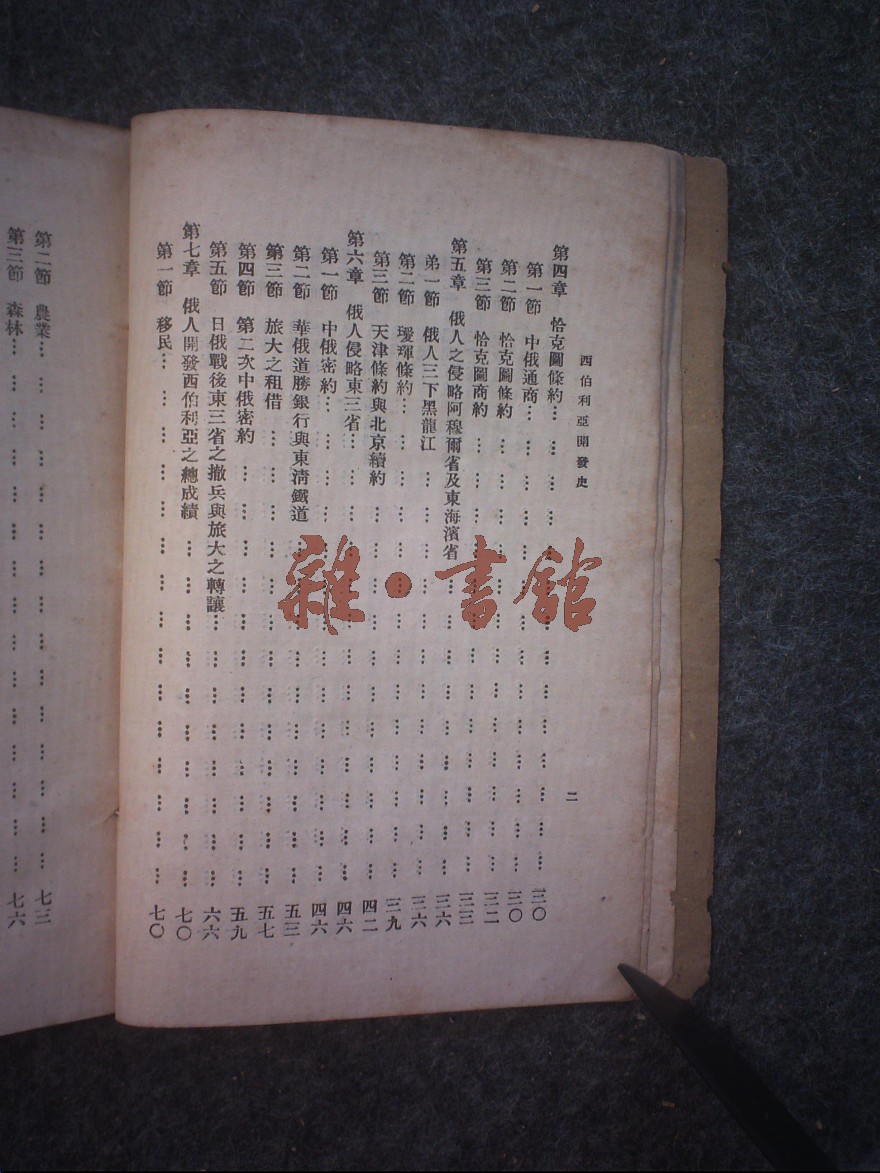 西伯利亞開發史
二
第四章　恰克圖條約… … … … … … … 三〇
第一節　中俄通商… … … … … … … 三〇
第二節　恰克圖條約… … … … … … … 三二
第三節　恰克圖商約… … … … … … … 三三
第五章　俄人之侵略阿穆爾省及東海濱省… … … … … 三六
弟一節　俄人三下黑龍江… … … … … … … 三六
第二節　璦琿條約… … … … … … … 三九
第三節　天津條約與北京續約… … … … … … 四二
第六章　俄人侵略東三省… … … … … … … 四六
第一節　中俄密約… … … … … … … 四六
第二節　華俄道勝銀行與東淸鐵道… … … … … … 五三
第三節　旅大之租借… … … … … … … 五七
第四節　第二次中俄密約… … … … … … … 五九
第五節　日俄戰後東三省之撤兵與旅大之轉讓… … … … … 六六
第七章　俄人開發西伯利亞之總成績… … … … … … 七〇
第一節　移民… … … … … … … … … 七〇
第二節　農業… … … … … … … … 七三
第三節　森林… … … … … … … … 七六
雜·書館